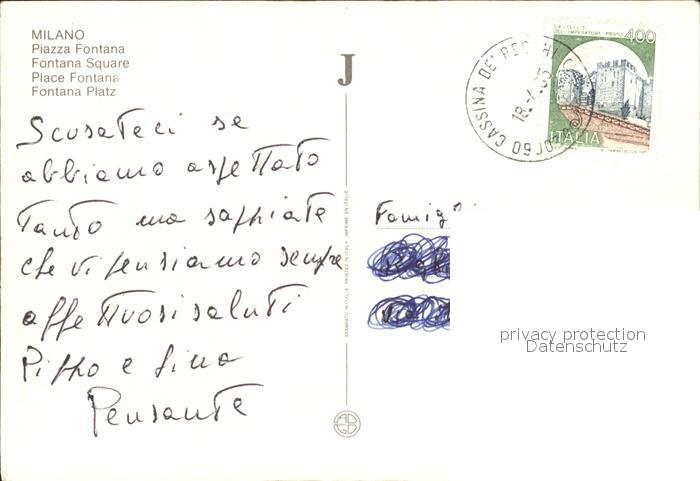 MILANO
Piazza Fontana
Fontana Square
Place Fontana
Fontana Platz
J
Scusateci se
abbiamo aspettato
tanto ma sappiate
che vi pensiamo sempre
affettuosi saluti
Pippo e Lina
Pensante
STAMPATO IN ITALIA PRINTED IN ITALY IMPRIMÉ EN ITALIE
CASTELLO DELL'IMPERATORE PRATO 400
ITALIA
CASSINA DE' PECCHI
18.4.85
Famig
Via
privacy protection
Datenschutz